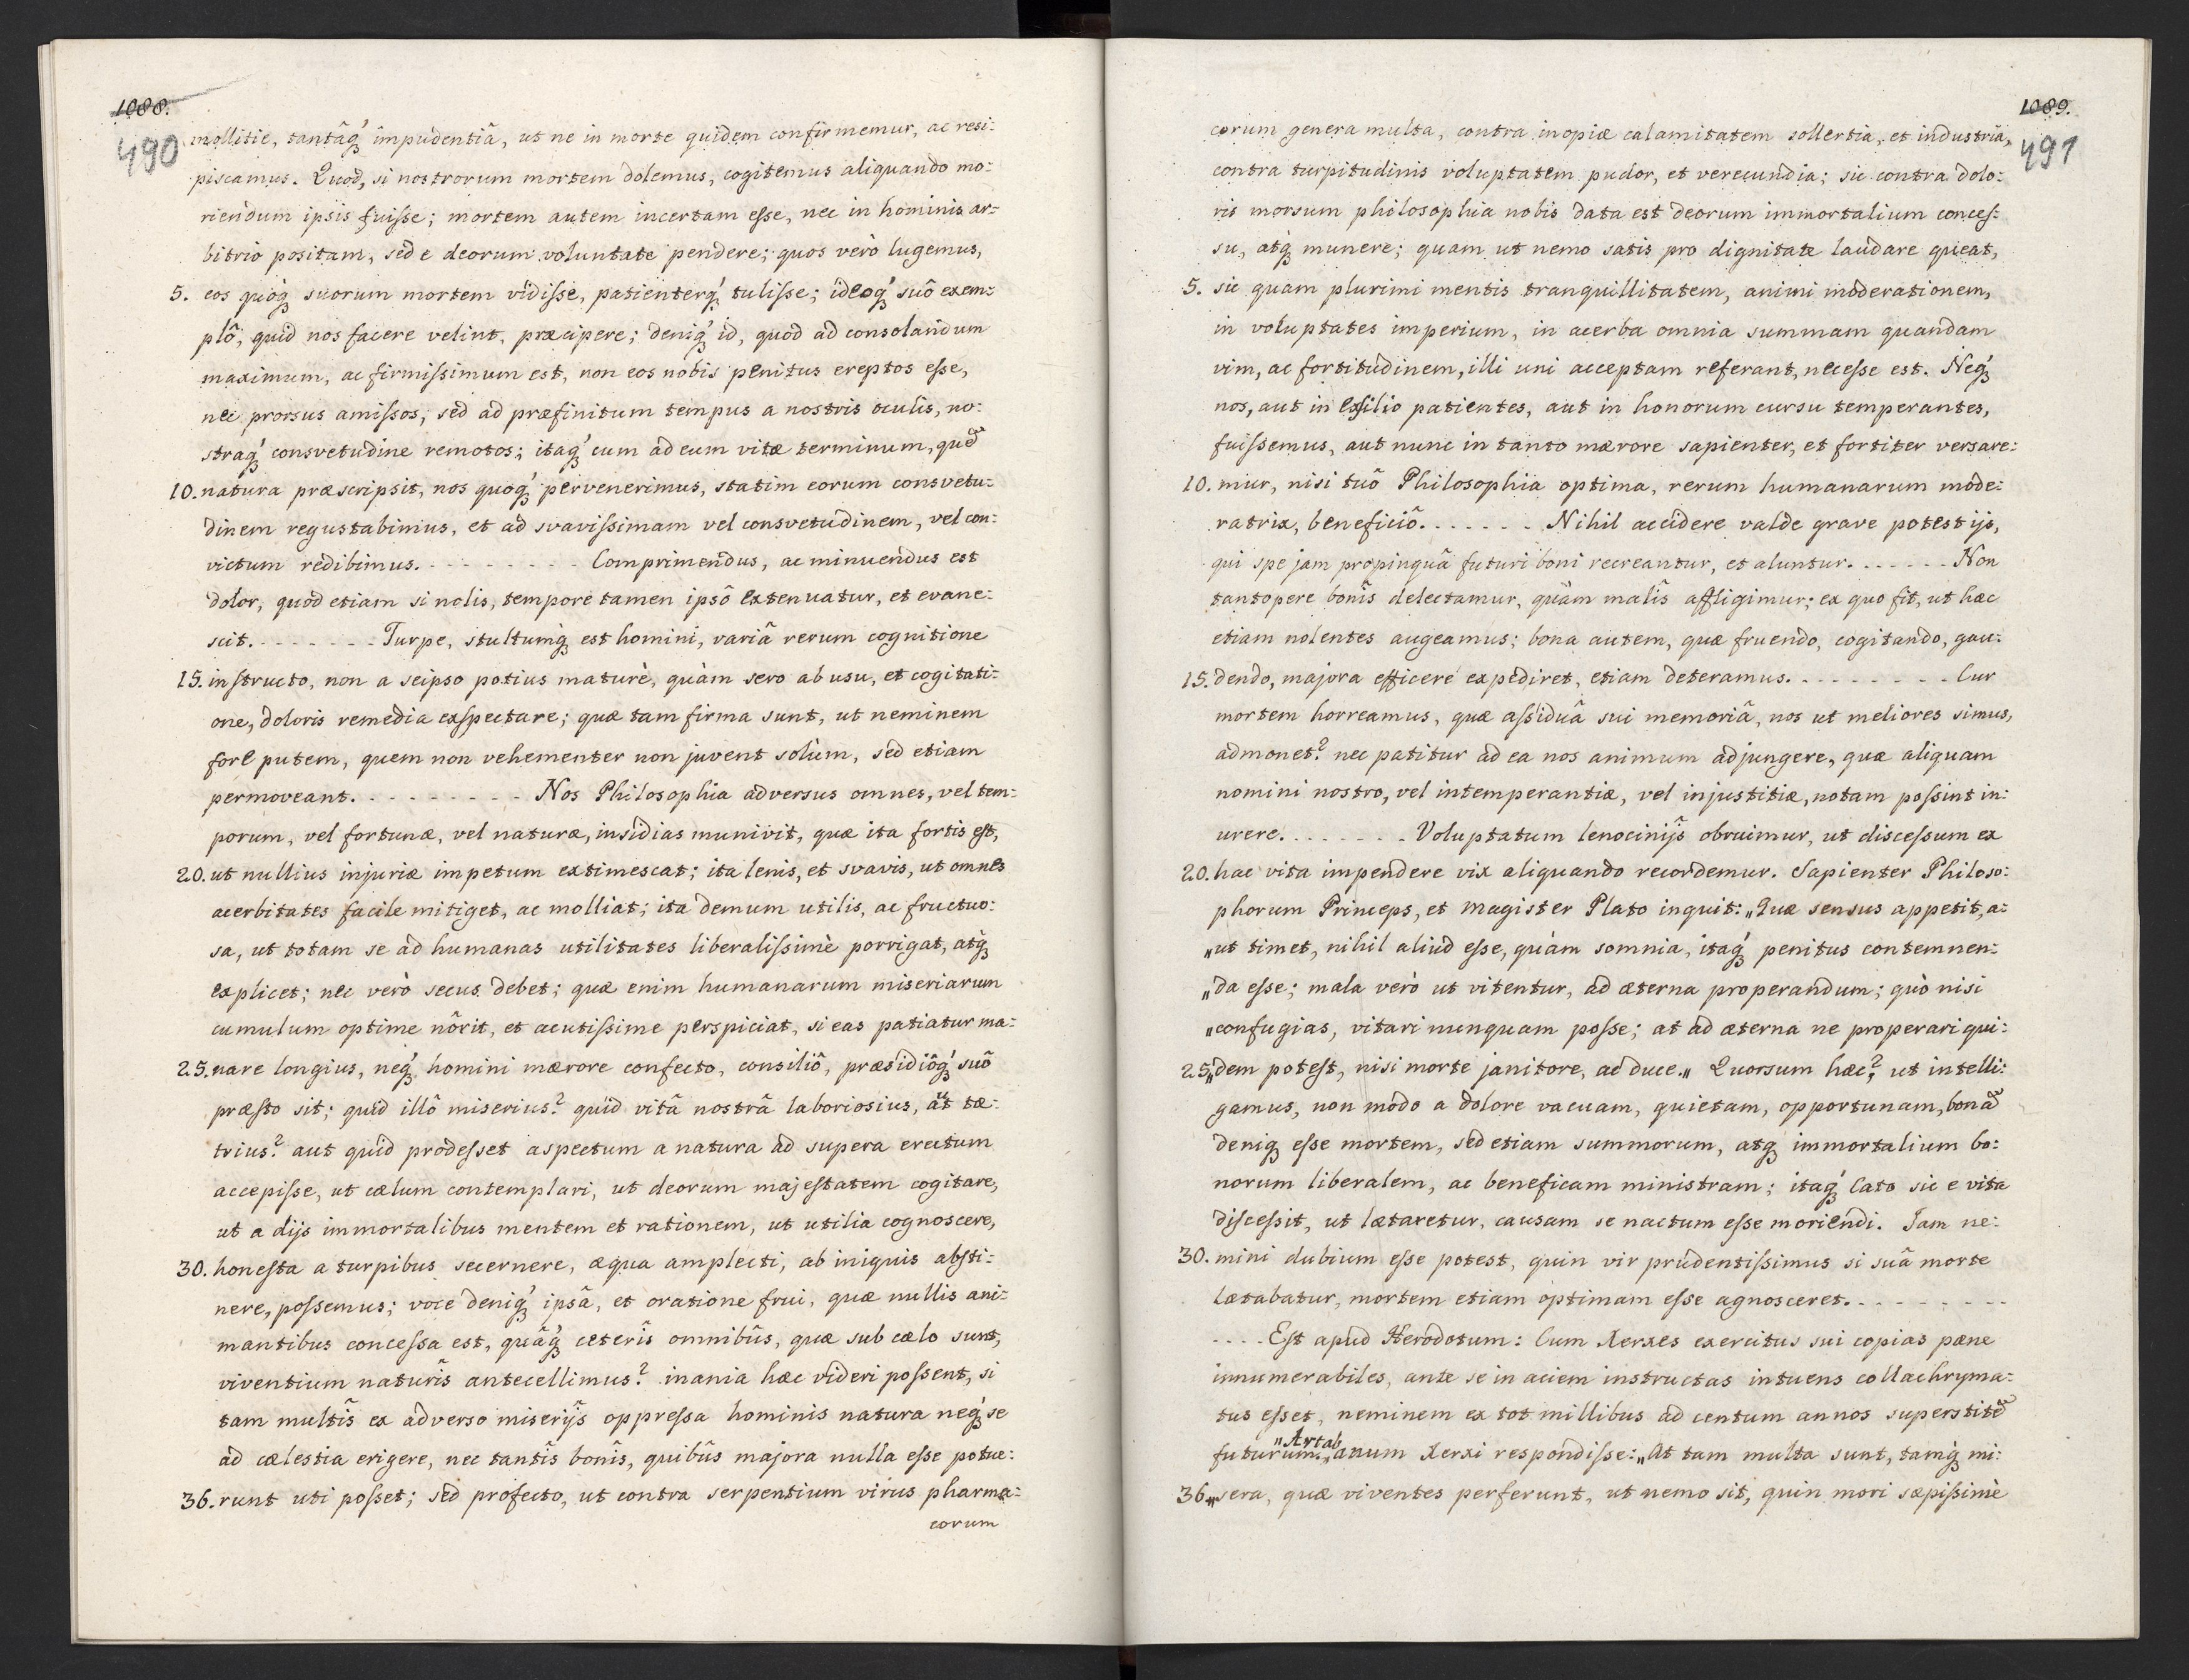 1088.
490
mollitie, tantâq́ꝫ impudentiâ, ut ne in morte quidem confirmemur, ac resi:
piscamus. Quod, si nostrorum mortem dolemus, cogitemus aliquando mo:
riendum ipsis fuiſse; mortem autem incertam eſse, nec in hominis ar:
bitrio positam, sed e deorum voluntate pendere; quos verò lugemus,
5. eos quoq́ꝫ suorum mortem vidiſse, patienterq́ꝫ tuliſse; ideoq́ꝫ suô exem:
plô, quid nos facere velint, præcipere; deniq́ꝫ id, quod ad consolandum
maximum, ac firmiſsimum est, non eos nobis penitus ereptos eſse,
nec prorsus amiſsos, sed ad præfinitum tempus a nostris oculis, no:
straq́ꝫ consvetudine remotos; itaq́ꝫ cum ad eum vitæ terminum, quẽ
10. natura præscripsit, nos quoq́ꝫ pervenerimus, statim eorum consvetu:
dinem regustabimus, et ad svaviſsimam vel consvetudinem, vel con:
victum redibimus. - - - - - - - - Comprimendus, ac minuendus est
dolor, quod etiam si nolis, tempore tamen ipsô extenuatur, et evane:
scit. - - - - - - - Turpe, stultumq́ꝫ est homini, variâ rerum cognitione
15. instructo, non a seipso potius maturè, quàm sero ab usu, et cogitati:
one, doloris remedia exspectare; quæ tam firma sunt, ut neminem
fore putem, quem non vehementer non juvent solùm, sed etiam
permoveant. - - - - - - - - Nos Philosophia adversus omnes, vel tem:
porum, vel fortunæ, vel naturæ, insidias munivit, quæ ita fortis est,
20. ut nullius injuriæ impetum extimescat; ita lenis, et svavis, ut omnes
acerbitates facile mitiget, ac molliat; ita demum utilis, ac fructuo:
sa, ut totam se ad humanas utilitates liberaliſsimè porrigat, atq́ꝫ
explicet; nec verò secus debet; quæ enim humanarum miseriarum
cumulum optime nôrit, et acutiſsime perspiciat, si eas patiatur ma:
25. nare longius, neq́ꝫ homini mærore confecto, consiliô, præsidiôq́ꝫ suô
præsto sit; quid illô miserius? quid vitâ nostrâ laboriosius, aut tæ:
trius? aut quid prodeſset aspectum a natura ad supera erectum
accepiſse, ut cælum contemplari, ut deorum majestatem cogitare,
ut a dijs immortalibus mentem et rationem, ut utilia cognoscere,
30. honesta a turpibus secernere, æqua amplecti, ab iniquis absti:
nere, poſsemus; voce deniq́ꝫ ipsâ, et oratione frui, quæ nullis ani:
mantibus conceſsa est, quâq́ꝫ ceterîs omnibûs, quæ sub cælo sunt,
viventium naturîs antecellimus? inania hæc videri poſsent, si
tam multîs ex adverso miserijs oppreſsa hominis natura neq́ꝫ se
ad cælestia erigere, nec tantîs bonîs, quibûs majora nulla eſse potue:
36. runt uti poſset; sed profecto, ut contra serpentium virus pharma:
corum
1089.
491
corum genera multa, contra inopiæ calamitatem sollertia, et industria,
contra turpitudinis voluptatem pudor, et verecundia; sic contra dolo:
ris morsum philosophia nobis data est deorum immortalium conceſ:
su, atq́ꝫ munere; quam ut nemo satis pro dignitate laudare queat,
5. sic quam plurimi mentis tranquillitatem, animi moderationem,
in voluptates imperium, in acerba omnia summam quandam
vim, ac fortitudinem, illi uni acceptam referant, neceſse est. Neq́ꝫ
nos, aut in exsilio patientes, aut in honorum cursu temperantes,
fuiſsemus, aut nunc in tanto mærore sapienter, et fortiter versare:
10. mur, nisi tuô Philosophia optima, rerum humanarum mode:
ratrix, beneficiô. - - - - - - Nihil accidere valde grave potest ijs,
qui spe jam propinquâ futuri boni recreantur, et aluntur. - - - - - - Non
tantopere bonîs delectamur, quàm malîs affligimur; ex quo fit, ut hæc
etiam nolentes augeamus; bona autem, quæ fruendo, cogitando, gau:
15. dendo, majora efficere expediret, etiam deteramus. - - - - - - - - Cur
mortem horreamus, quæ aſsiduâ sui memoriâ, nos ut meliores simus,
admonet? nec patitur ad ea nos animum adjungere, quæ aliquam
nomini nostro, vel intemperantiæ, vel injustitiæ, notam poſsint in:
urere. - - - - - - - Voluptatum lenocinijs obruimur, ut disceſsum ex
20. hac vita impendere vix aliquando recordemur. Sapienter Philoso:
phorum Princeps, et Magister Plato inquit: „Quæ sensus appetit, a:
„ut timet, nihil aliud eſse, quàm somnia, itaq́ꝫ penitus contemnen:
„da eſse; mala verò ut vitentur, ad æterna properandum; quò nisi
„confugias, vitari nunquam poſse; at ad æterna ne properari qui:
25. „dem potest, nisi morte janitore, ac duce.„ Quorsum hæc? ut intelli:
gamus, non modo a dolore vacuam, quietam, opportunam, bonã
deniq́ꝫ eſse mortem, sed etiam summorum, atq́ꝫ immortalium bo:
norum liberalem, ac beneficam ministram; itaq́ꝫ Cato sic e vita
disceſsit, ut lætaretur, causam se nactum eſse moriendi. Jam ne:
30. mini dubium eſse potest, quin vir prudentiſsimus si suâ morte
lætabatur, mortem etiam optimam eſse agnosceret. - - - - - - - -
- - - - Est apud Herodotum: Cum Xerxes exercitus sui copias pæne
innumerabiles, ante se in aciem instructas intuens collachryma:
tus eſset, neminem ex tot millibus ad centum annos superstitẽ
futurum: „Artabanum Xerxi respondiſse: „At tam multa sunt, tamq́ꝫ mi:
36. „sera, quæ viventes perferunt, ut nemo sit, quin mori sæpiſsimè